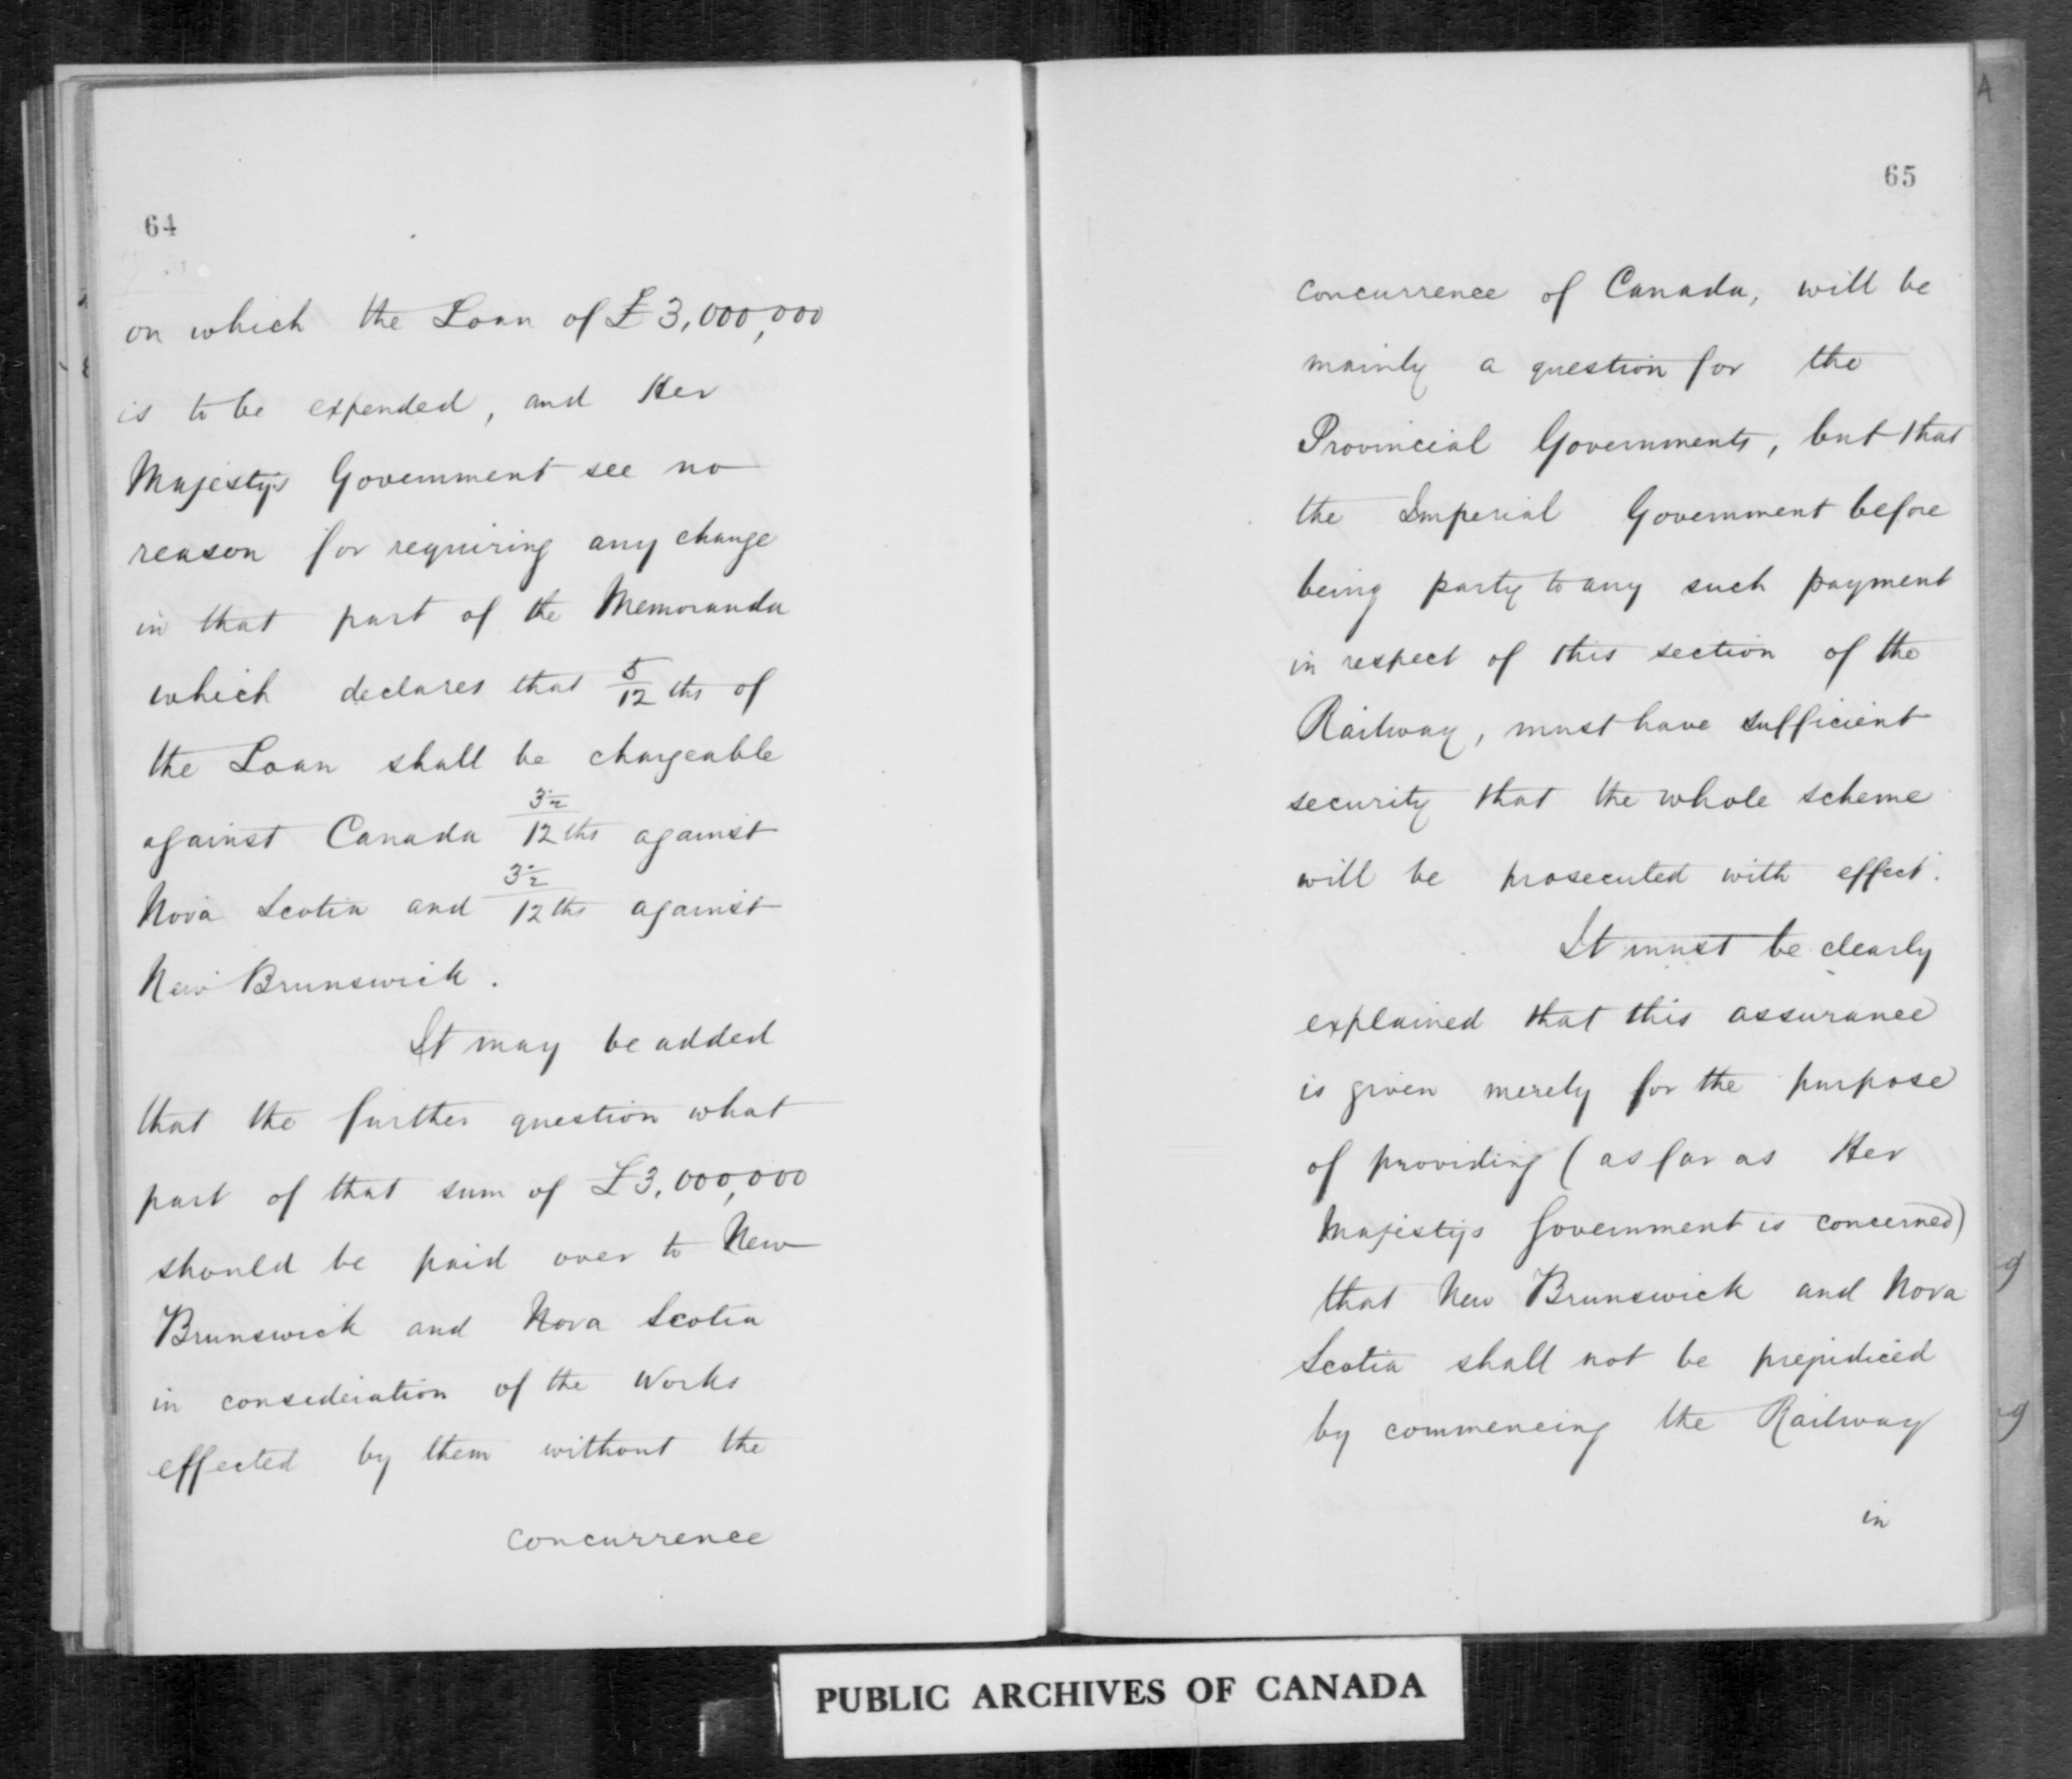 64
on which the Loan of £3,000,000
is to be expended, and Her
Majesty's Government see no
reason for requiring any change
in that part of the Memoranda
which declares that 5/12 ths of
the Loan shall be chargeable
against Canada 3½/12 ths against
Nova Scotia and 3½/12 ths against
New Brunswick.
It may be added
that the further question what
part of that sum of £3,000,000
should be paid over to New
Brunswick and Nova Scotia
in consideration of the Works
effected by them without the
concurrence
65
concurrence of Canada, will be
mainly a question for the
Provincial Governments, but that
the Imperial Government before
being party to any such payment
in respect of this section of the
Railway, must have sufficient
security that the whole scheme
will be prosecuted with effect.
It must be clearly
explained that this assurance
is given merely for the purpose
of providing (as far as Her
Majesty's Government is concerned)
that New Brunswick and Nova
Scotia shall not be prejudiced
by commencing the Railway
in
A
g
g
PUBLIC ARCHIVES OF CANADA